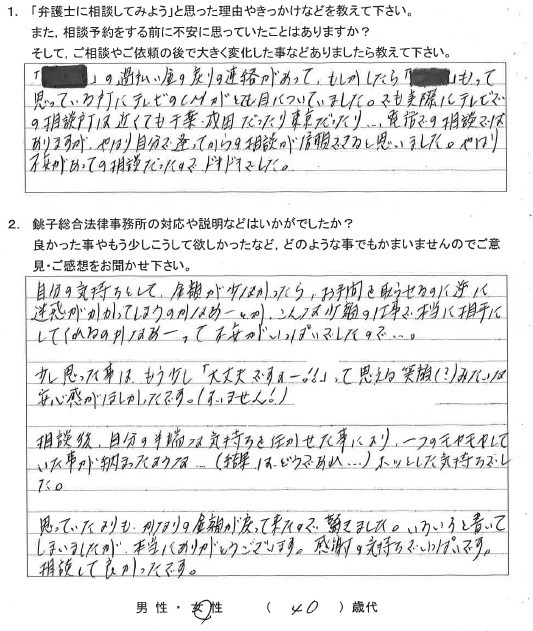 1. 「弁護士に相談してみよう」と思った理由やきっかけなどを教えて下さい。
また，相談予約をする前に不安に思っていたことはありますか？
そして，ご相談やご依頼の後で大きく変化した事などありましたら教えて下さい。
「 」の過払い金の戻りの連絡があって、もしかしたら「 」もって
思っている時にテレビのCMがとても目についていました。でも実際にテレビで
の相談所は近くても千葉・成田だったり東京だったり…電話での相談では
ありますが、やはり自分で逢ってからの相談が信頼できると思いました。やはり
不安があっての相談だったのでドキドキでした。
2. 銚子総合法律事務所の対応や説明などはいかがでしたか？
良かった事やもう少しこうして欲しかったなど，どのような事でもかまいませんのでご意
見・ご感想をお聞かせ下さい。
自分の気持ちとして、金額が少なかったら、お手間を取らせるのに逆に
迷惑がかかってしまうのかなぁーとか、こんな少額の仕事で本当に相手に
してくれるのかなぁーって不安がいっぱいでしたので…。
少し思った事は、もう少し「大丈夫ですよー!!」って思える笑顔(?)みたいな
安心感がほしかったです。(すいません!)
相談後、自分の半端な気持ちを任かせた事により、一つのモヤモヤして
いた事が納まったような…(結果は、どうであれ…)ホッとした気持ちでし
た。
思っていたよりも、かなりの金額が戻って来たので、驚きました。いろいろと書いて
しまいましたが、本当にありがとうございます。感謝の気持ちでいっぱいです。
相談して良かったです。
男性・女性 （ 40 ）歳代